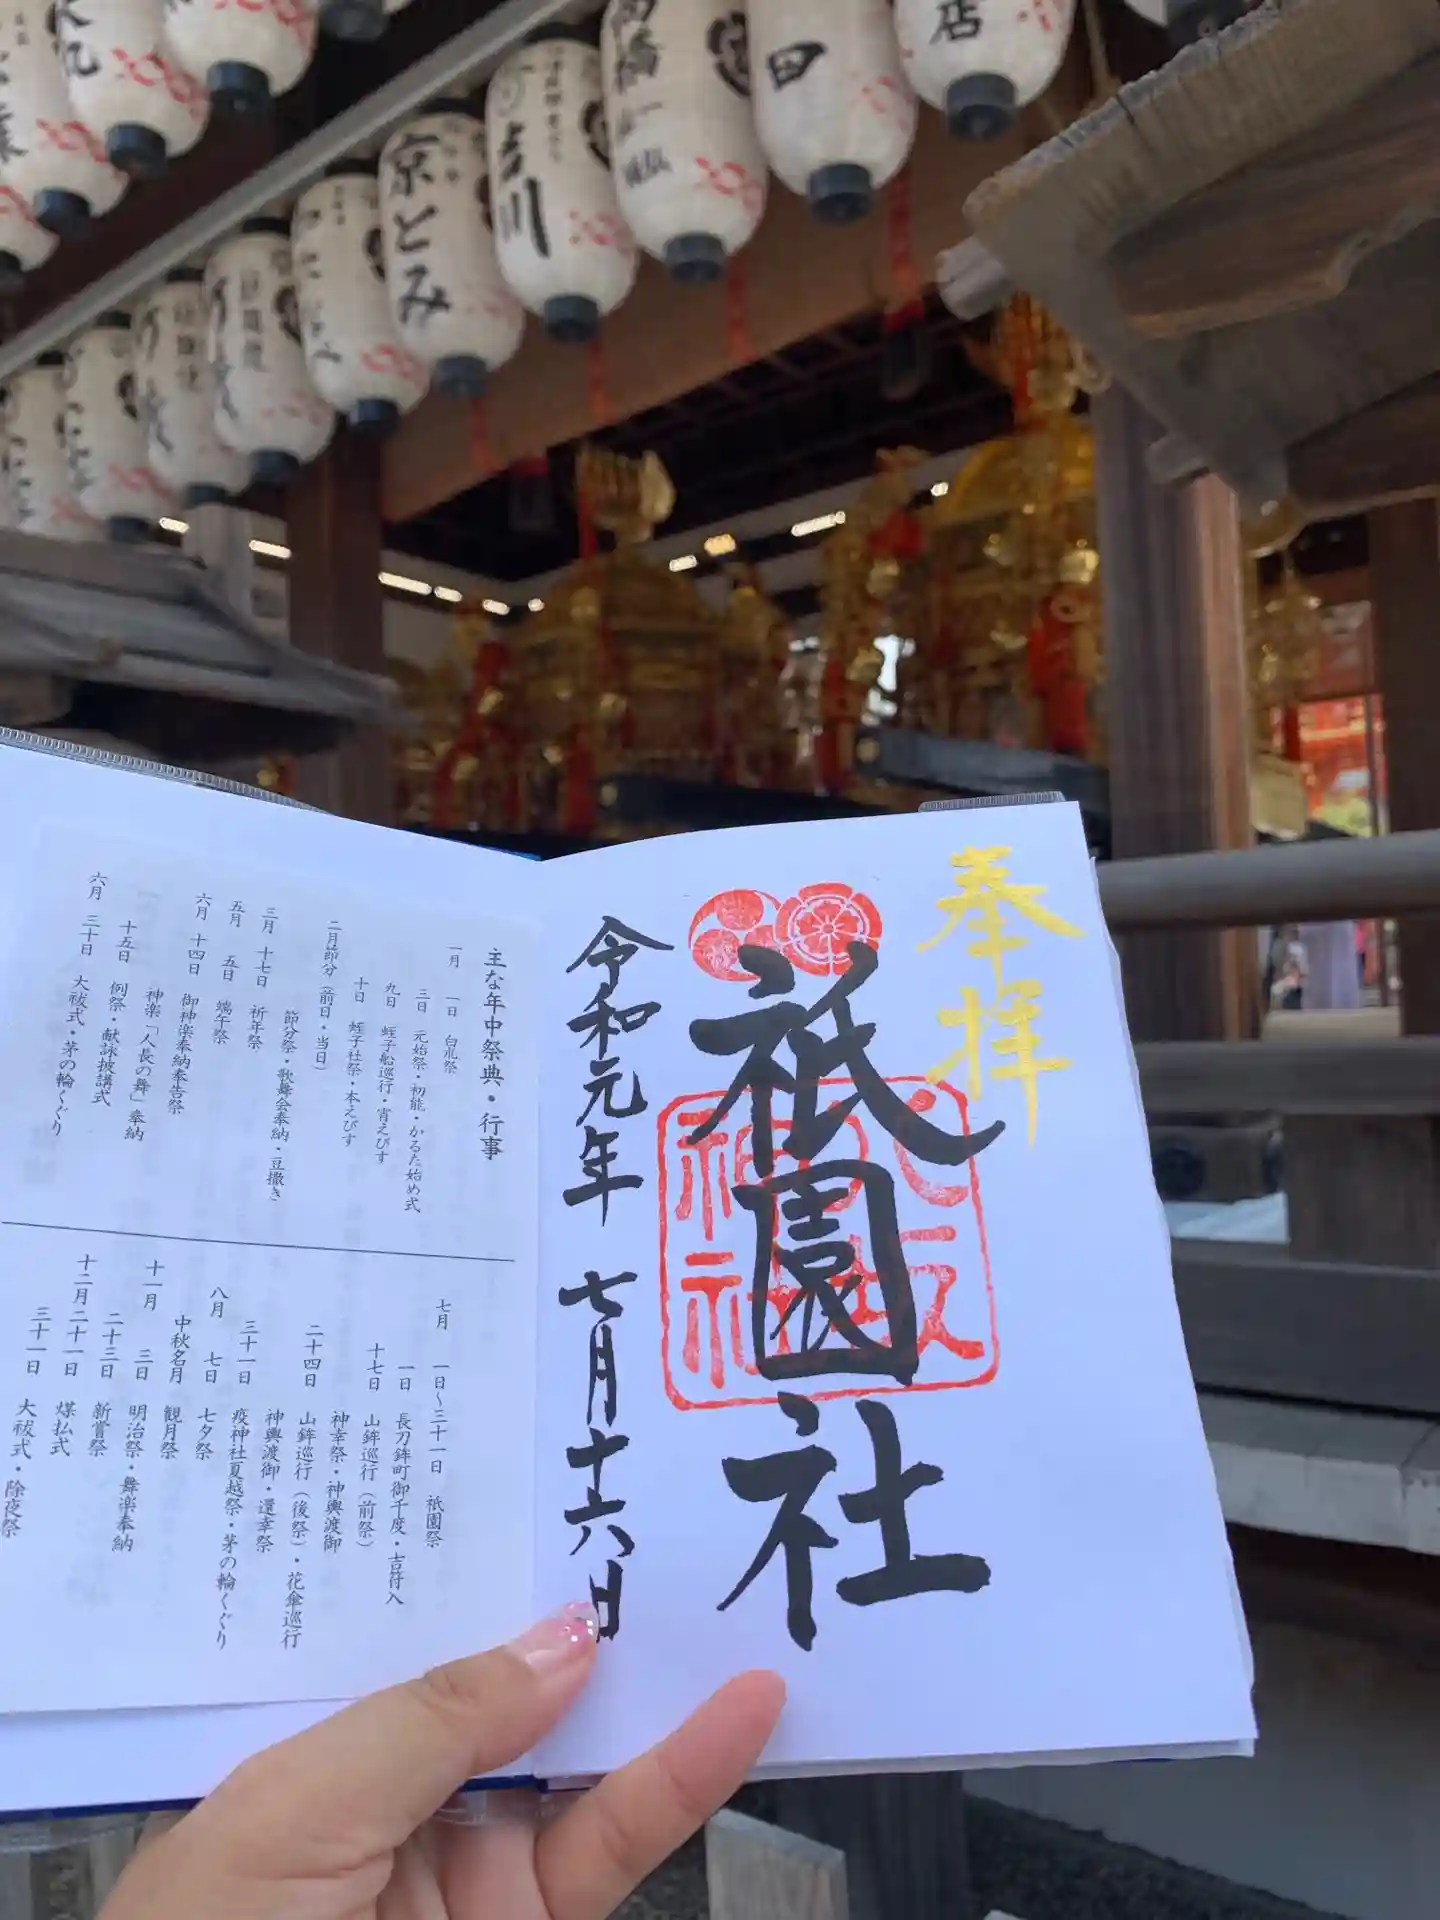 店
田
吉川
京とみ
奉拝
祇園社
八坂神社
令和元年 七月十六日
主な年中祭典・行事
一月 一日 白朮祭
三日 元始祭・初能・かるた始め式
九日 蛭子船巡行・宵えびす
十日 蛭子社祭・本えびす
二月節分(前日・当日)
節分祭・歌舞会奉納・豆撒き
三月 十七日 祈年祭
五月 五日 端午祭
六月 十四日 御神楽奉納奉告祭
神楽「人長の舞」奉納
十五日 例祭・献詠披講式
六月 三十日 大祓式・茅の輪くぐり
七月 一日〜三十一日 祇園祭
一日 長刀鉾町御千度・吉符入
十七日 山鉾巡行(前祭)
神幸祭・神輿渡御
二十四日 山鉾巡行(後祭)・花傘巡行
神輿渡御・還幸祭
三十一日 疫神社夏越祭・茅の輪くぐり
八月 七日 七夕祭
中秋名月 観月祭
十一月 三日 明治祭・舞楽奉納
二十三日 新嘗祭
十二月二十一日 煤払式
三十一日 大祓式・除夜祭